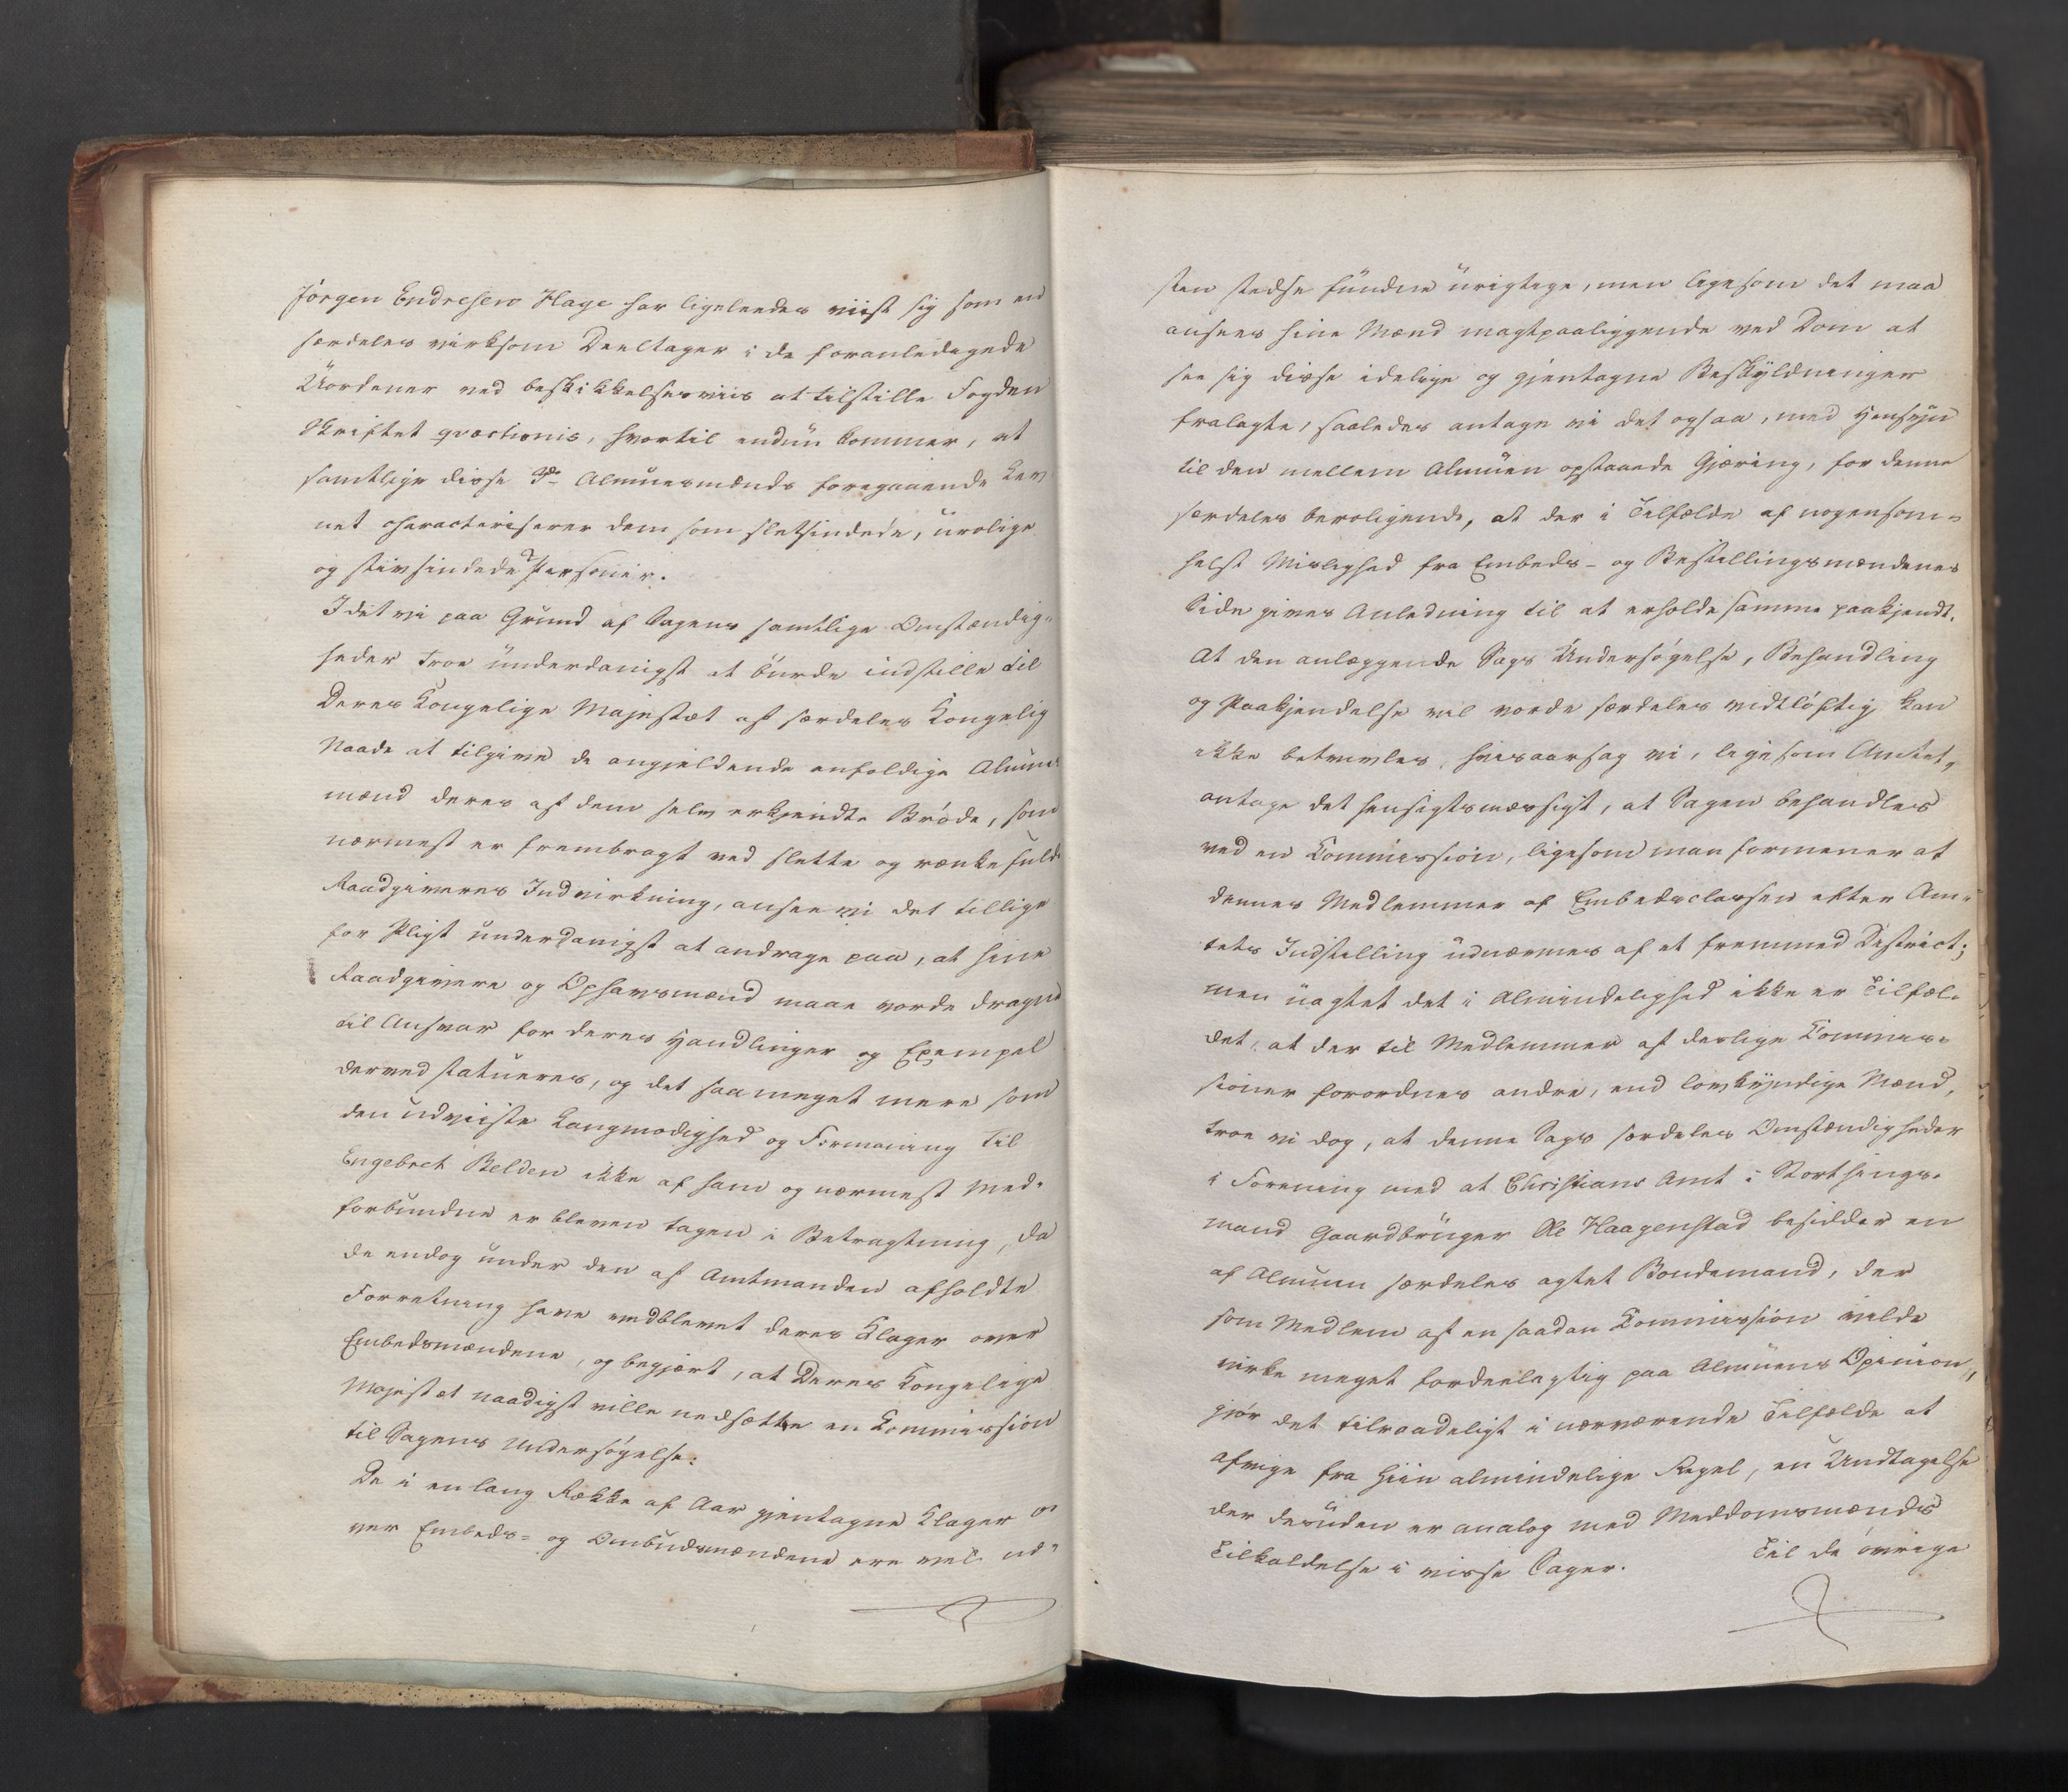 Jörgen Endresen Hage har ligeleedes viist sig som en
særdeles virksom Deeltager i de foranledigede
Uordener ved beskikkelsesviis at tilstille Fogden
Skriftet qvæstionis, hvortil endnu kommer, at
samtlige disse 3de Almuesmænds foregaaende Lev
net characteriserer dem som sletsindede, urolige
og stivsindede Personer.
Idet vi paa Grund af Sagens samtlige Omstændig-
heder troe underdanigst at burde indstille til
Deres Kongelige Majestæt af særdeles Kongelig
Naade at tilgive de angjeldende enfoldige Almues
mænd deres af dem selv erkjendte Bröde, som
nærmest er frembragt ved slette og rænkefulde
Raadgiveres Indvirkning, ansee vi det tillige
for Pligt underdanigst at andrage paa, at hine
Raadgivere og Ophavsmænd maae vorde dragne
til Ansvar for deres Handlinger og Exempel
derved statueres, og det saameget mere som
den udviiste Langmodighed og Formaning til
Engebret Belden ikke af ham og nærmest Med-
forbundne er bleven tagen i Betragtning, da
de endog under den af Amtmanden afholdte
Forretning have vedblevet deres Klager over
Embedsmændene, og begjært, at Deres Kongelige
Majestæt naadigst ville nedsætte en Kommission
til Sagens Undersögelse.
De i en lang Række af Aar gjentagne Klager o
ver Embeds- og Ombudsmændene ere vel nd-
sten stedse fundne urigtige, men ligesom det maa
ansees hine Mænd magtpaaliggende ved Dom at
see sig disse idelige og gjentagne Beskyldninger
fralagte, saaledes antage vi det ogsaa, med Hensyn
til den mellem Almuen opstaaede Gjæring, for denne
særdeles beroligende, at der i Tilfælde af nogensom-
helst Mislighed fra Embeds- og Bestillingsmændenes
Side gives Anledning til at erholde samme paakjendt.
At den anlæggende Sags Undersögelse, Behandling
og Paakjendelse vil vorde særdeles vidtlöftig kan
ikke betvivles, hvisaarsag vi, ligesom Amtet,
antage det hensigtsmæssigt, at Sagen behandles
ved en Kommission, ligesom man formener at
dennes Medlemmer af Embedsclassen efter Am-
tets Indstilling udnævnes af et fremmed District;
men uagtet det i Almindelighed ikke er Tilfæl-
det, at der til Medlemmer af deslige Kommis-
sioner forordnes andre, end lovkyndige Mænd,
troe vi dog, at denne Sags særdeles Omstændigheder
i Forening med at Christians Amt i Storthings-
mand Gaardbruger Ole Haagenstad besidder en
af Almuen særdeles agtet Bondemand, der
som Medlem af en saadan Kommission vilde
virke meget fordeelagtig paa Almuens Opinion,
gjör det tilraadeligt i nærværende Tilfælde at
afvige fra hiin almindelige Regel, en Undtagelse
der desuden er analog med Meddomsmænds
Tilkaldelse i visse Sager. Til de övrige